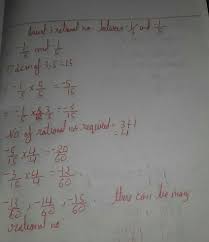 Insert 3 rational no. between -1/3 and -1/5
-1/3 and -1/5
LCM of 3,5 = 15
= -1/3 × 5/5 = -5/15
= -1/5 × 3/3 = -3/15
No of rational no. required = 3+1
= 4
-5/15 × 4/4 = -20/60
-3/15 × 4/4 = -12/60
-13/60, -14/60, -15/60 there can be many
rational no